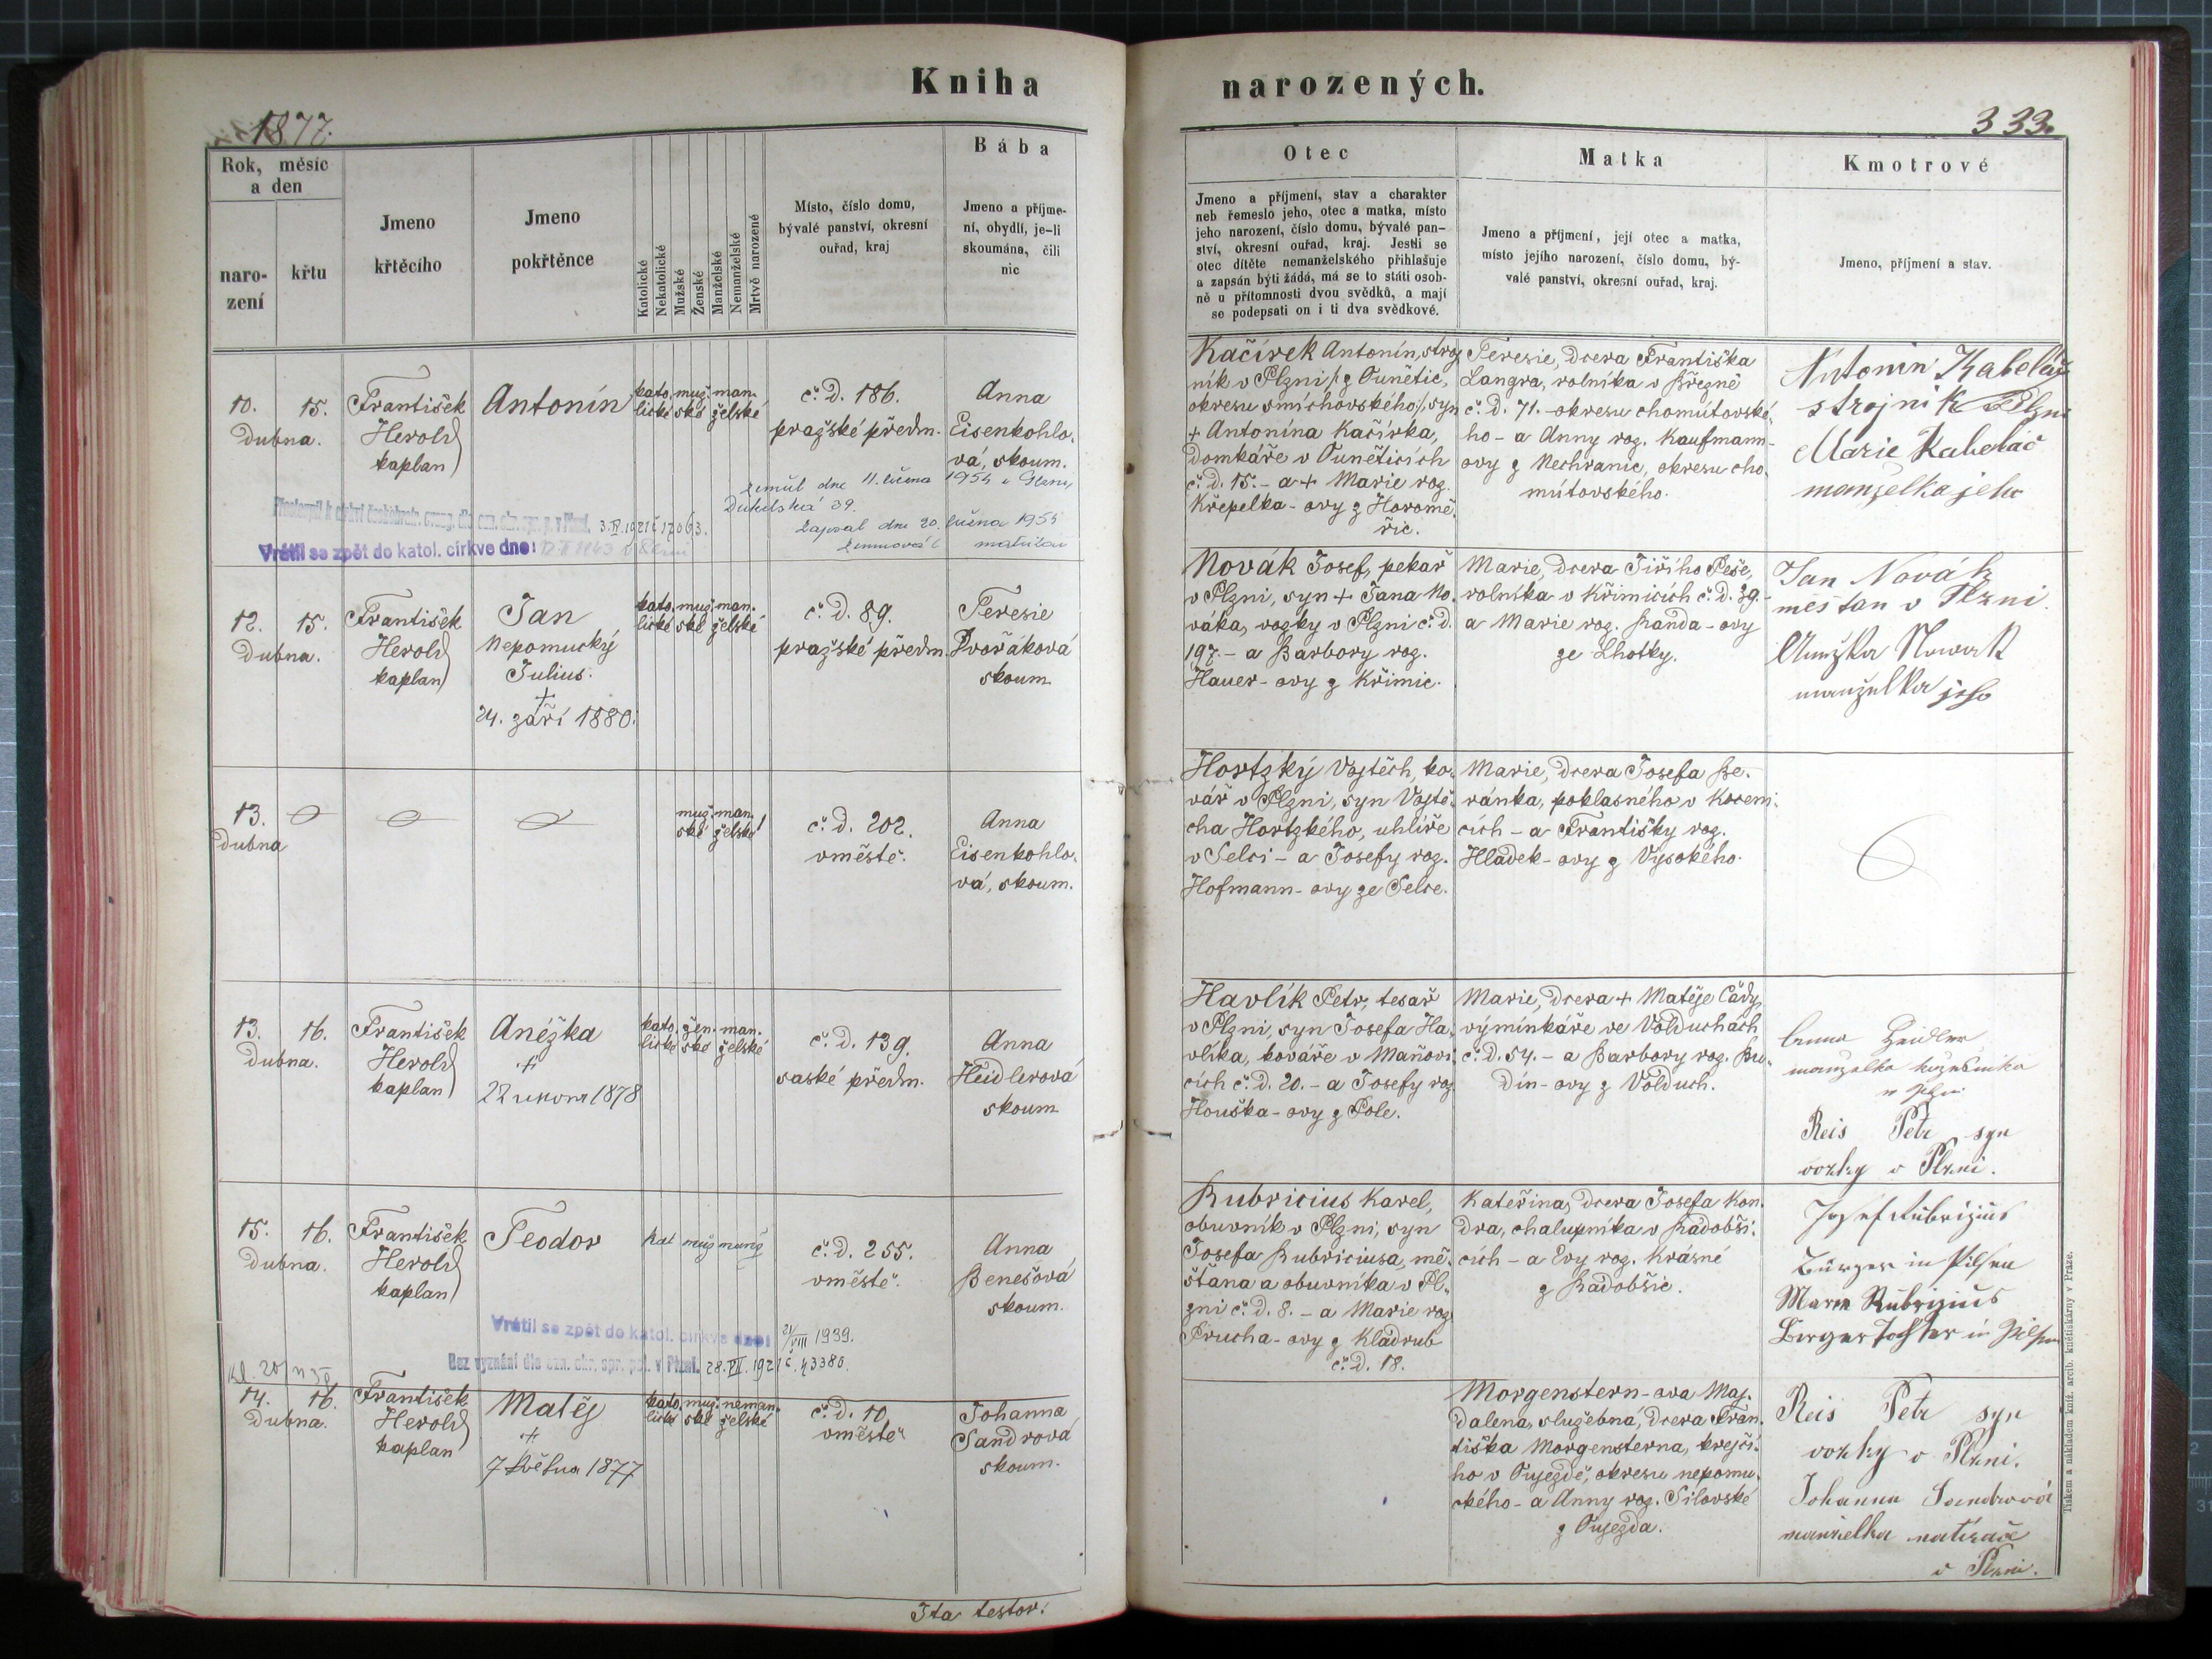 Kniha narozených.
1877.
333.
Rok, měsíc
a den
naro-
zení
křtu
Jmeno
křtěcího
Jmeno
pokřtěnce
Katolické
Nekatolické
Mužské
Ženské
Manželské
Nemanželské
Mrtvě narozené
Místo, číslo domu,
bývalé panství, okresní
ouřad, kraj
Bába
Jmeno a příjme-
ní, obydlí, je-li
skoumána, čili
nic
Otec
Jmeno a příjmení, stav a charakter
neb řemeslo jeho, otec a matka, místo
jeho narození, číslo domu, bývalé pan-
ství, okresní ouřad, kraj. Jestli se
otec dítěte nemanželského přihlašuje
a zapsán býti žádá, má se to státi osob-
ně u přítomnosti dvou svědků, a mají
se podepsati on i ti dva svědkové.
Matka
Jmeno a příjmení, její otec a matka,
místo jejího narození, číslo domu, bý-
valé panství, okresní ouřad, kraj.
Kmotrové
Jmeno, příjmení a stav.
10. 15.
Dubna.
František
Herold
kaplan
Antonín
kato. muž. man.
lické ské želské
č. D. 186.
pražské předm.
Anna
Eisenkohlo.
vá, skoum.
Zemřel dne 11. 1954 v Plzni,
Dukelská 39.
Zapsal dne 20. 1954
3.II.1921 č 17063.
Vrátil se zpět do katol. církve dne:
Kačírek Antonín, stroj
ník v Plzni /: z Ounětic,
okresu smíchovského :/, syn
+ Antonína Kačírka,
domkáře v Ouněticích
č. D. 15. - a + Marie roz.
Křepelka - ovy z Horomě.
řic.
Teresie, dcera Františka
Langra, rolníka v Březně
č. D. 71. - okresu chomútovské.
ho - a Anny roz. Kaufmann-
ovy z Nechranic, okresu cho.
mútovského.
Antonín Kabeláč
strojník Plzni
Marie Kabeláč
manželka jeho
12. 15.
Dubna.
František
Herold
kaplan
Jan
Nepomucký
Julius.
+
24. září 1880.
kato. muž. man.
lické ské želské
č. D. 89.
pražské předm.
Teresie
Dvořáková
skoum.
Novák Josef, pekař
v Plzni, syn + Jana No.
váka, vozky v Plzni č. D.
197. - a Barbory roz.
Hauer - ovy z Křimic.
Marie, dcera Jiřího Peše,
rolníka v Křimicích č. D. 39. -
a Marie roz. Randa - ovy
ze Lhotky.
Jan Novák
měšťan v Plzni.
Anužka Nowak
manželka jeho
13.
Dubna
muž. man.
ské želské!
č. D. 202.
v městě.
Anna
Eisenkohlo.
vá, skoum.
Hortzký Vojtěch, ko.
vář v Plzni, syn Vojtě.
cha Hortzkého, uhlíře
v Selci - a Josefy roz.
Hofmann - ovy ze Selce.
Marie, dcera Josefa Be.
ránka, poklasného v Kocem.
cích - a Františky roz.
Hladek - ovy z Vysokého.
13. 16.
Dubna.
František
Herold
kaplan
Anéžka
+
22 února 1878
kato. žen. man.
lické ské želské
č. D. 139.
saské předm.
Anna
Heidlerová
skoum.
Havlík Petr, tesař
v Plzni, syn Josefa Ha.
vlíka, kováře v Maňovi.
cích č. D. 20. - a Josefy roz
Houška - ovy z Pole.
Marie, dcera + Matěje Cády,
výminkáře ve Volduchách
č. D. 54. - a Barbory roz. Bu.
din - ovy z Volduch.
Anna Heidler
manželka
v Plzni
Reis Petr syn
vozky v Plzni.
15. 16.
Dubna.
František
Herold
kaplan
Teodor
kat muž manž
č. D. 255.
v městě.
Anna
Benešová
skoum.
Vrátil se zpět do katol. církve dne: 21/VIII 1939.
Bez vyznání dle ozn. okr. spr. pol. v Plzni. 28.VI.1921 č. 43380.
Rubricius Karel,
obuvník v Plzni, syn
Josefa Rubriciusa, mě.
šťana a obuvníka v Pl.
zni č. D. 8. - a Marie roz
Průcha - ovy z Kladrub
č. D. 18.
Kateřina, dcera Josefa Kon.
dra, chalupníka v Radobči.
cích - a Evy roz. Krásné
z Radobčic.
Josef Rubrizius
Bürger in Pilsen
Marie Rubrizius
Bürgers Tochter in Pilsen
14. 16.
Dubna.
František
Herold
kaplan
Matěj
+
7 Května 1877
kato. muž. neman.
lické ské želské
č. D. 10
v městě
Johanna
Sandrová
skoum.
Morgenstern - ova Maj.
dalena, služebná, dcera Fran.
tiška Morgensterna, krejčí.
ho v Oujezdě, okresu nepomu.
ckého - a Anny roz. Silovské
z Oujezda.
Reis Petr syn
vozky v Plzni.
Johanna Sandrová
manželka natírače
v Plzni.
Ita testor.
Tiskem a nákladem kníž. arcib. knětiskárny v Praze.